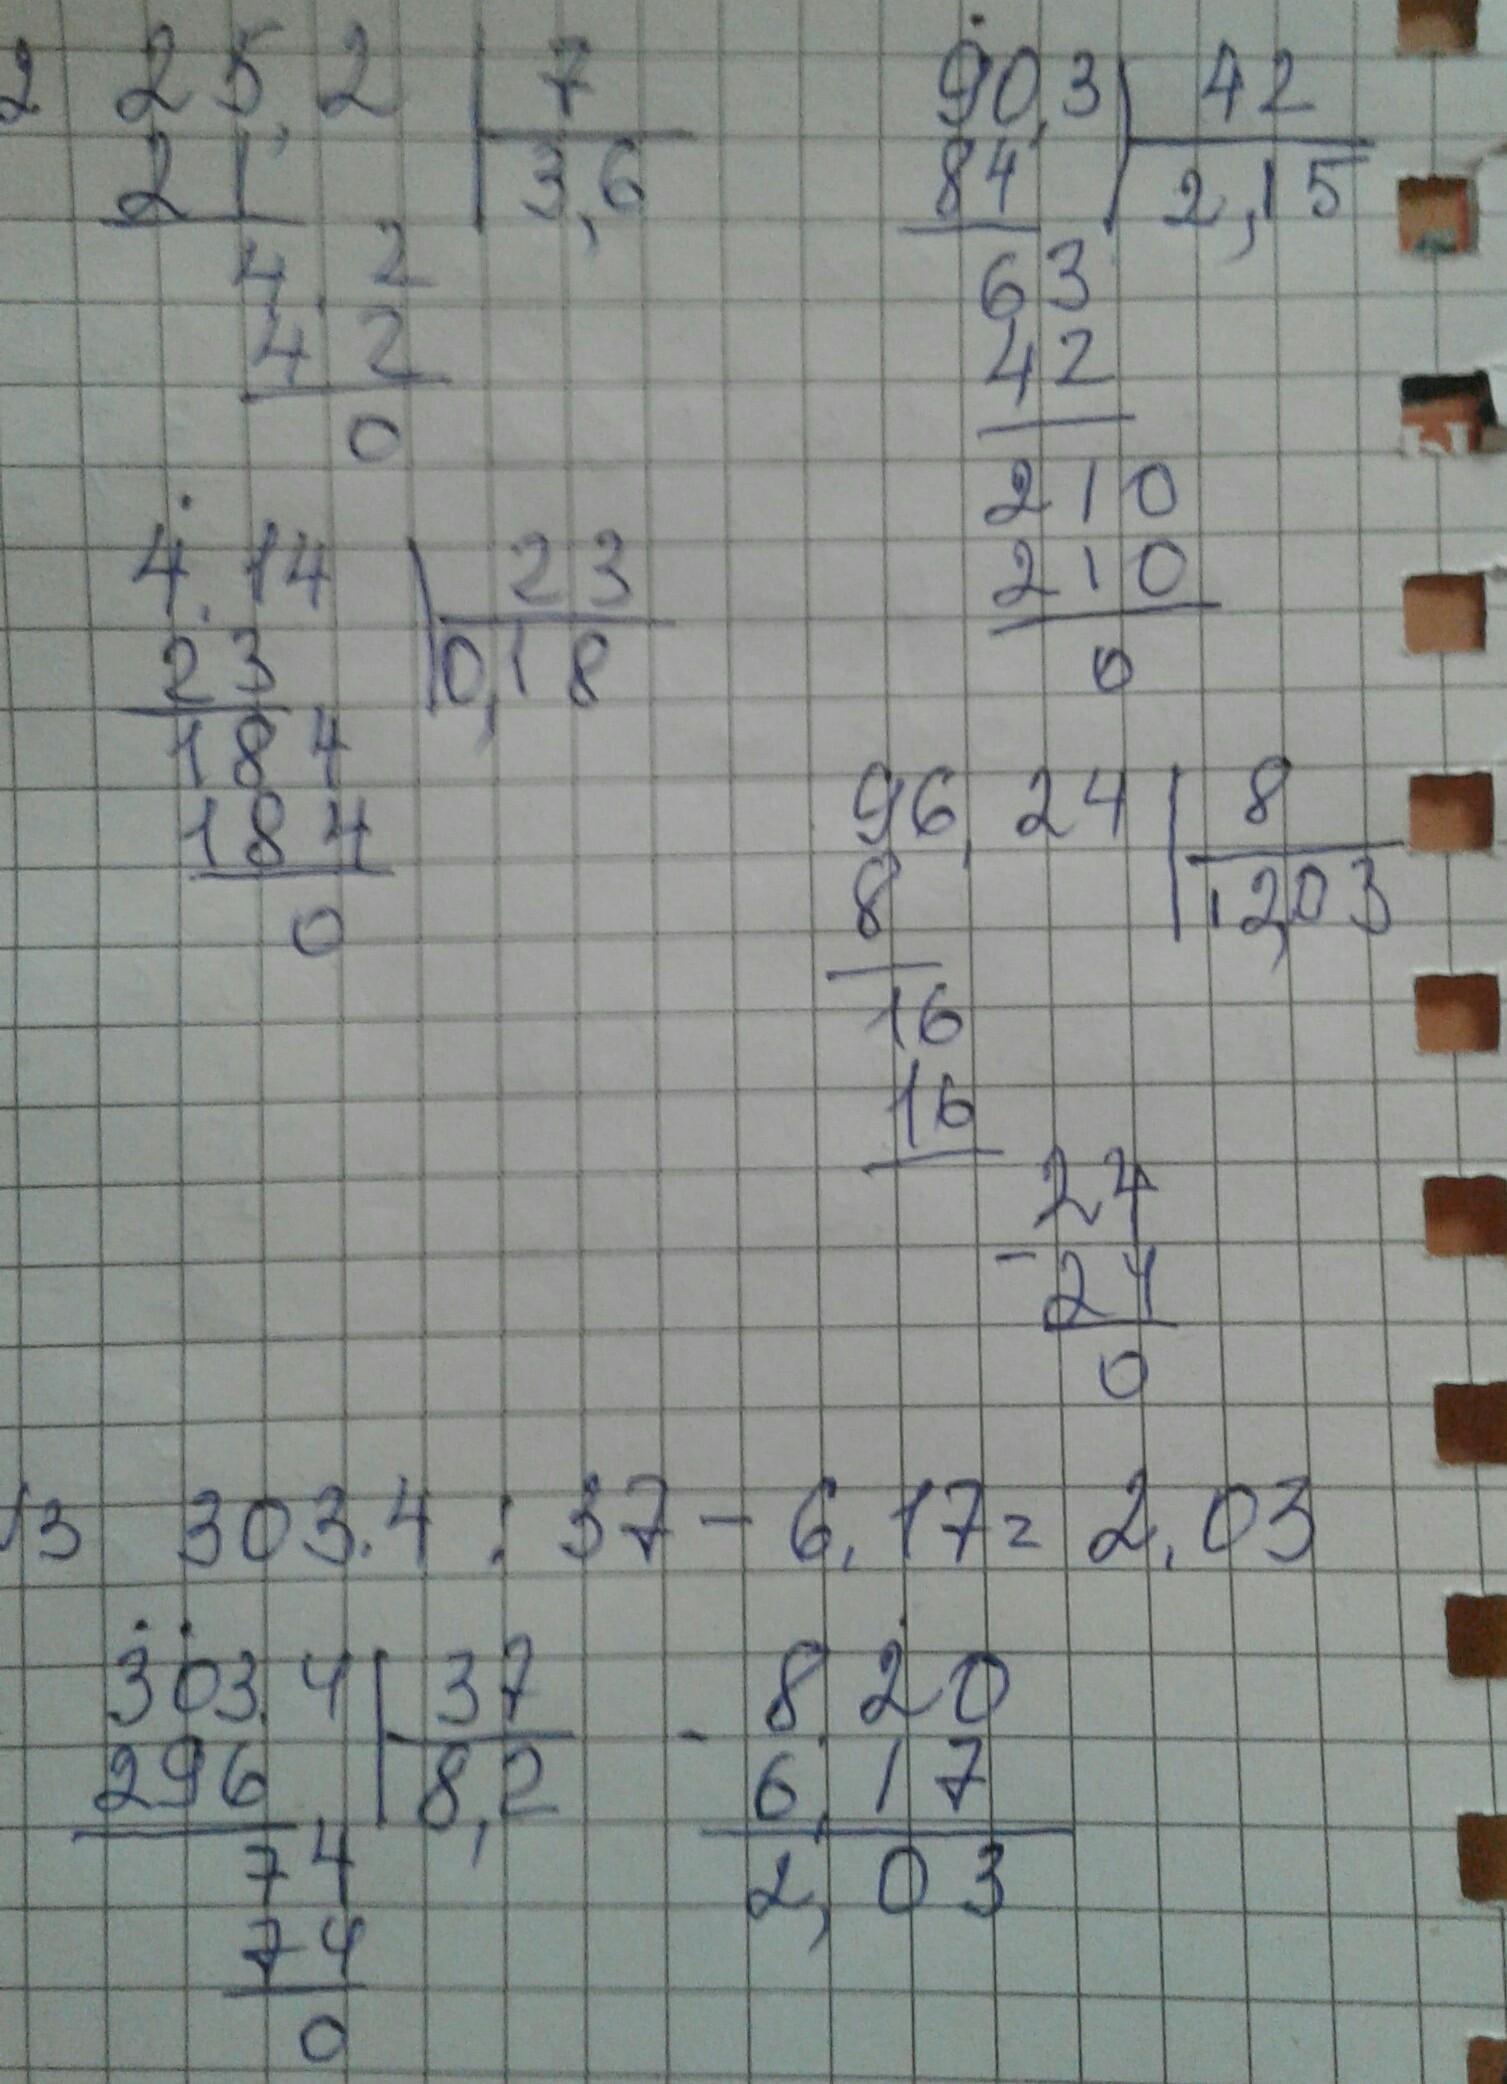 2 25,2 | 7
21 | 3,6
4 2
4 2
0
90,3 | 42
84 | 2,15
63
42
210
210
0
4,14 | 23
23 | 0,18
184
184
0
96,24 | 8
8 | 12,03
16
16
24
- 24
0
√3 303.4 : 37 - 6,17 = 2,03
303,4 | 37
296 | 8,2
74
74
0
- 8,20
6,17
2,03